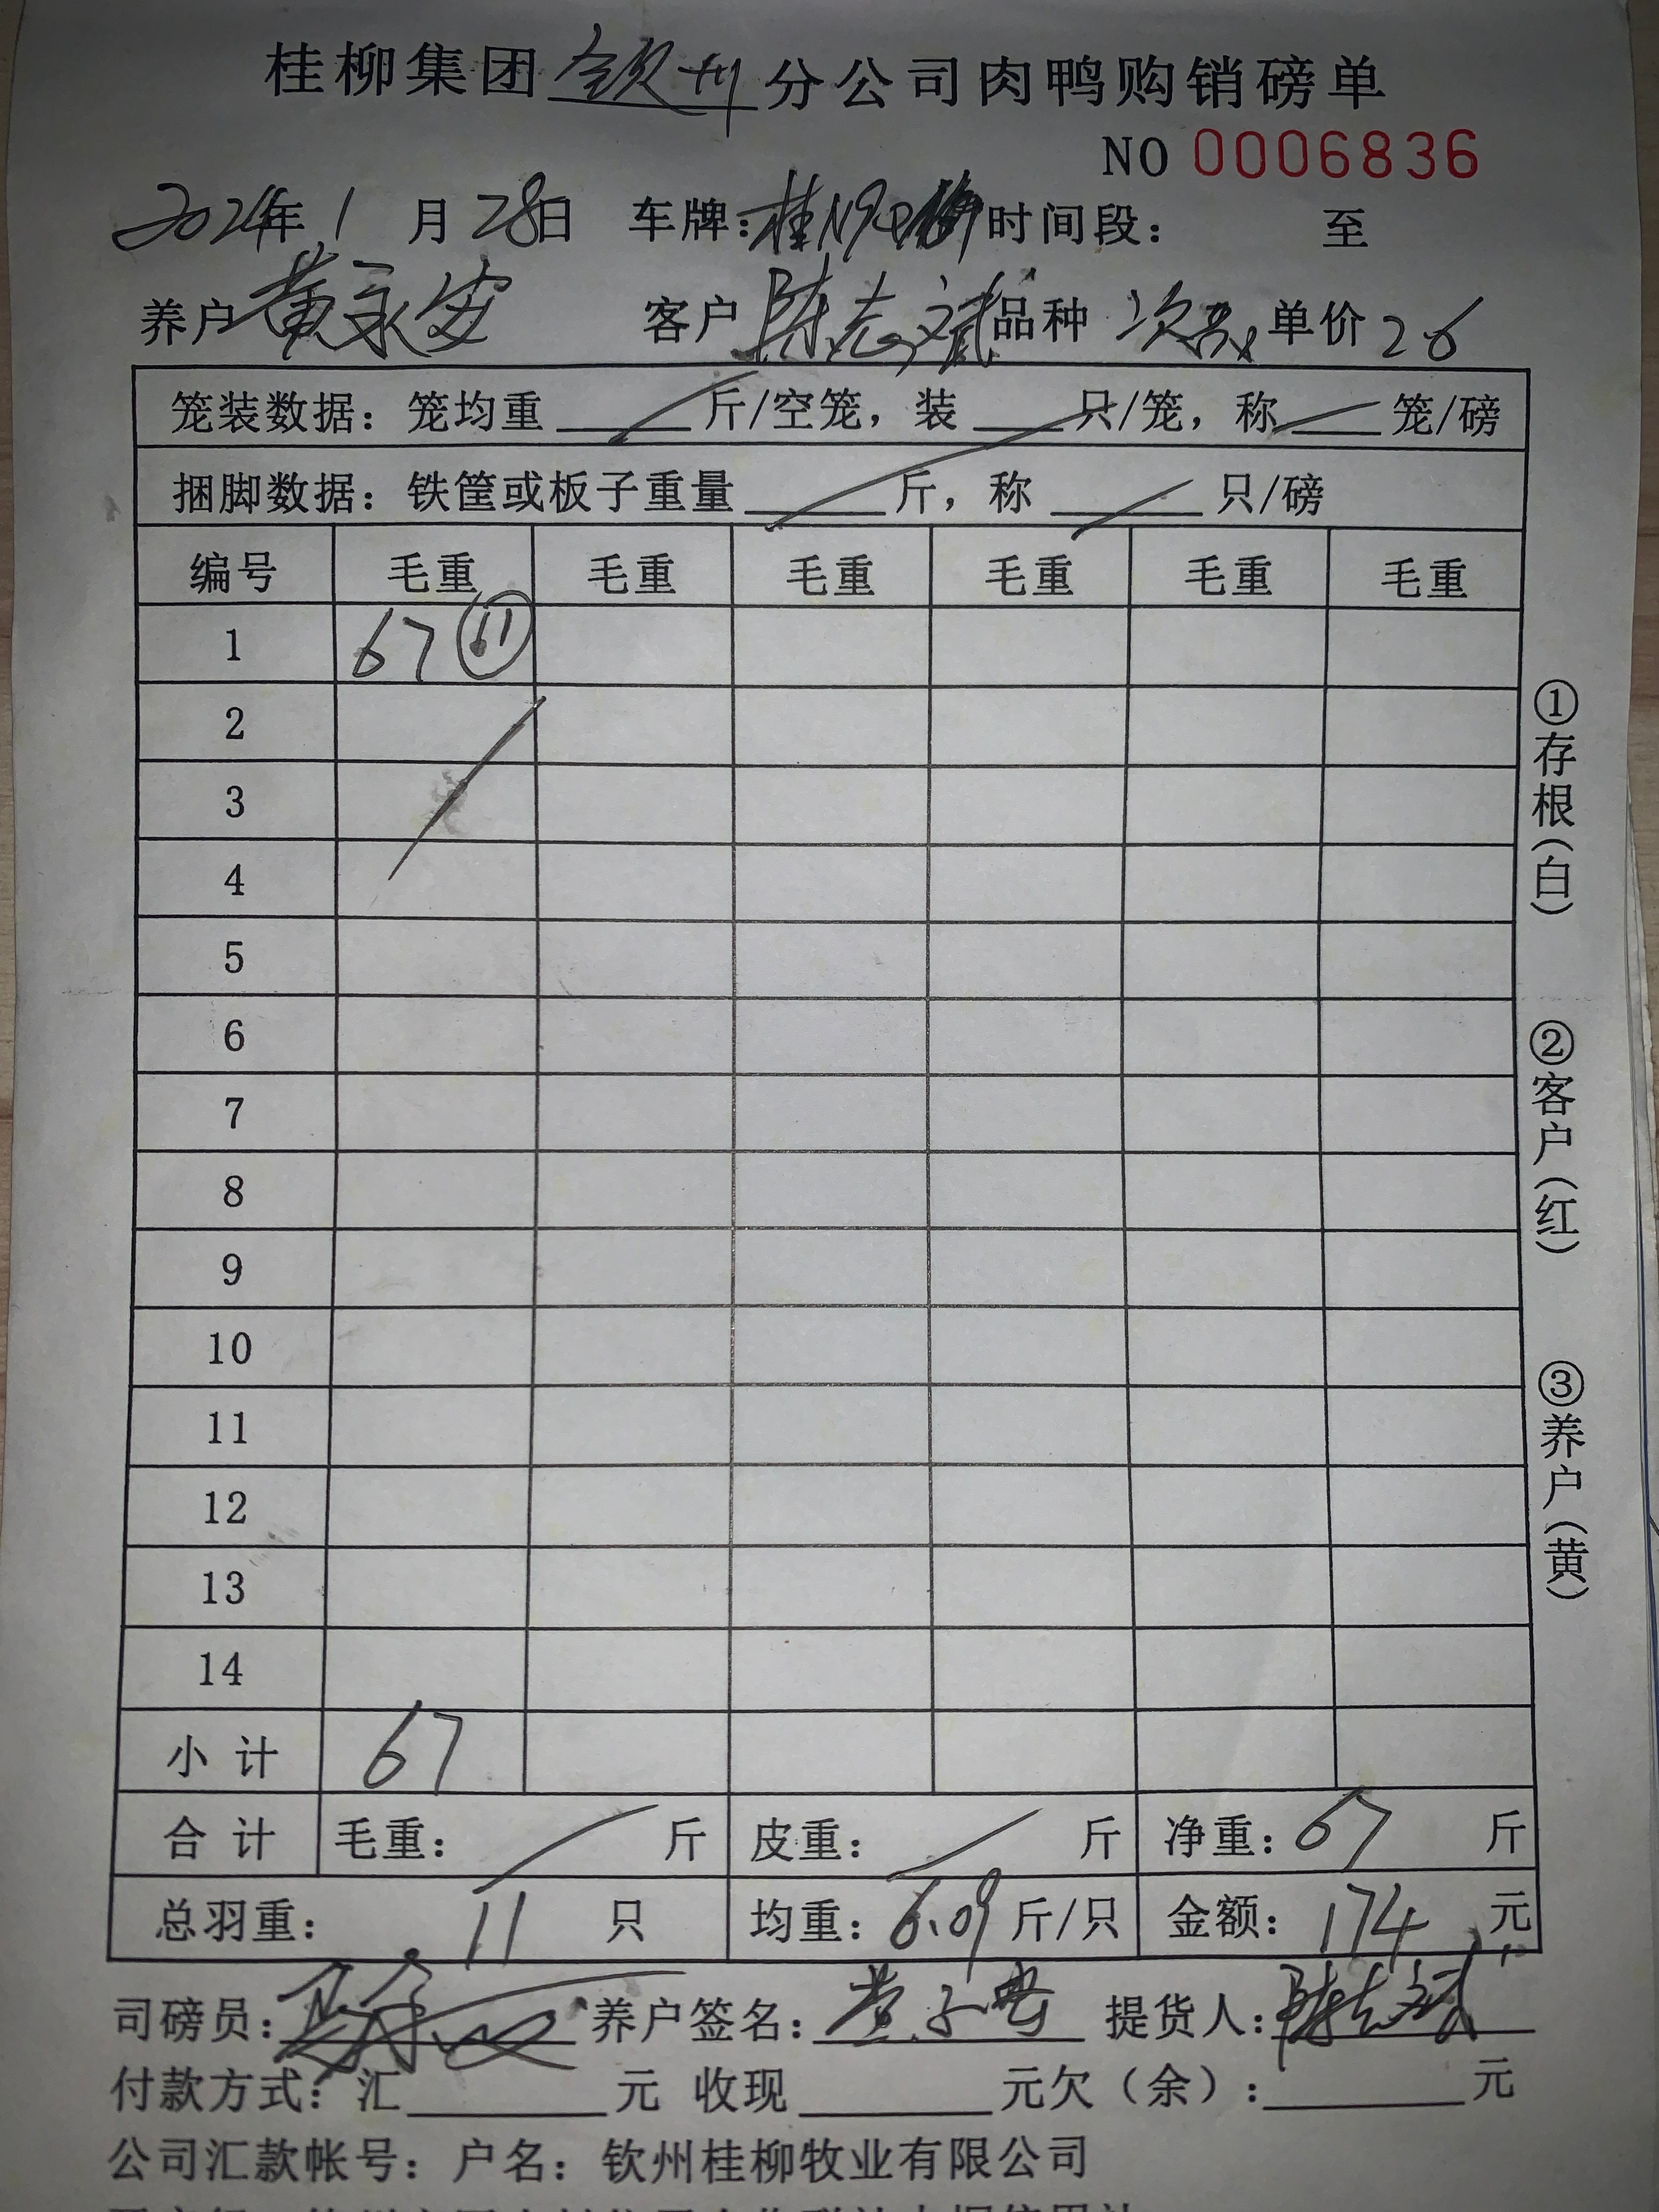 桂柳集团 钦州 分公司肉鸭购销磅单
NO 0006836
2024年 1 月 28日 车牌：桂N9 时间段： 至
养户 黄永安 客户 陈志斌 品种 次 单价 26
笼装数据：笼均重 斤/空笼，装 只/笼，称 笼/磅
捆脚数据：铁筐或板子重量 斤，称 只/磅
编号 毛重 毛重 毛重 毛重 毛重 毛重
1 67
2
3
4
5
6
7
8
9
10
11
12
13
14
小计 67
合计 毛重： 斤 皮重： 斤 净重：67 斤
总羽重： 11 只 均重：6.09 斤/只 金额：174 元
司磅员： 养户签名： 提货人：陈志斌
付款方式：汇 元 收现 元欠（余）： 元
公司汇款帐号：户名：钦州桂柳牧业有限公司
①存根（白）
②客户（红）
③养户（黄）